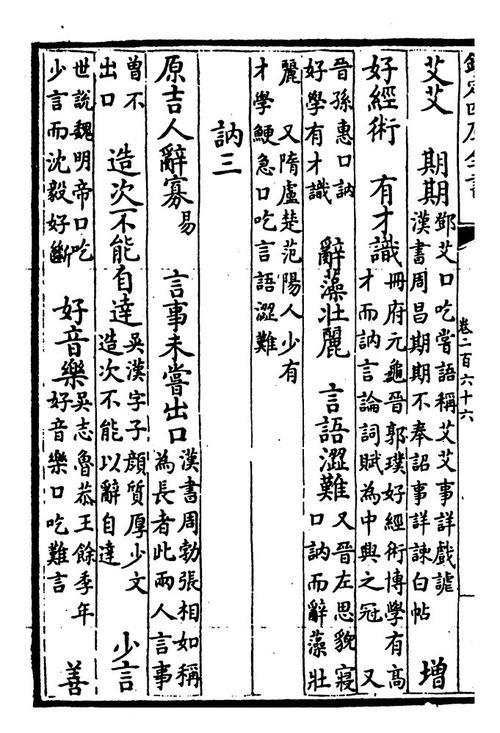 欽定四庫全書
卷二百六十六
艾艾 期期 鄧艾口吃嘗語稱艾艾事詳戲謔
漢書周昌期期不奉詔事詳諫白帖 增
好經術 有才識 冊府元龜晉郭璞好經術博學有高
才而訥言論詞賦為中興之冠 又
晉孫惠口訥
好學有才識 辭藻壯麗 言語澀難 又晉左思貌寢
口訥而辭藻壯
麗 又隋盧楚范陽人少有
才學鯁急口吃言語澀難
訥三
原吉人辭寡易 言事未嘗出口 漢書周勃張相如稱
為長者此兩人言事
曾不
出口 造次不能自達 吳漢字子顏質厚少文
造次不能以辭自達 少言
世說魏明帝口吃
少言而沈毅好斷 好音樂 吳志魯恭王餘季年
好音樂口吃難言 善